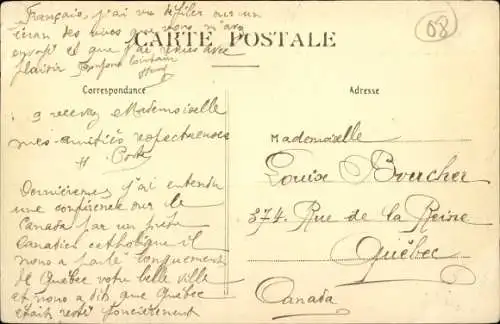 Français, j'ai vu défiler sur un
écran des vues que vous m'avez
envoyé et que j'ai revues avec
plaisir Toujours
CARTE POSTALE
08
Correspondance
Adresse
recevez Mademoiselle
mes amitiés respectueuses
H.
Dernièrement j'ai entendu
une conférence sur le
Canada par un prêtre
Canadien catholique il
nous a parlé longuement
de Québec votre belle ville
et nous a dit que Québec
était resté foncièrement
Mademoiselle
Louise Boucher
374 Rue de la Reine
Québec
Canada